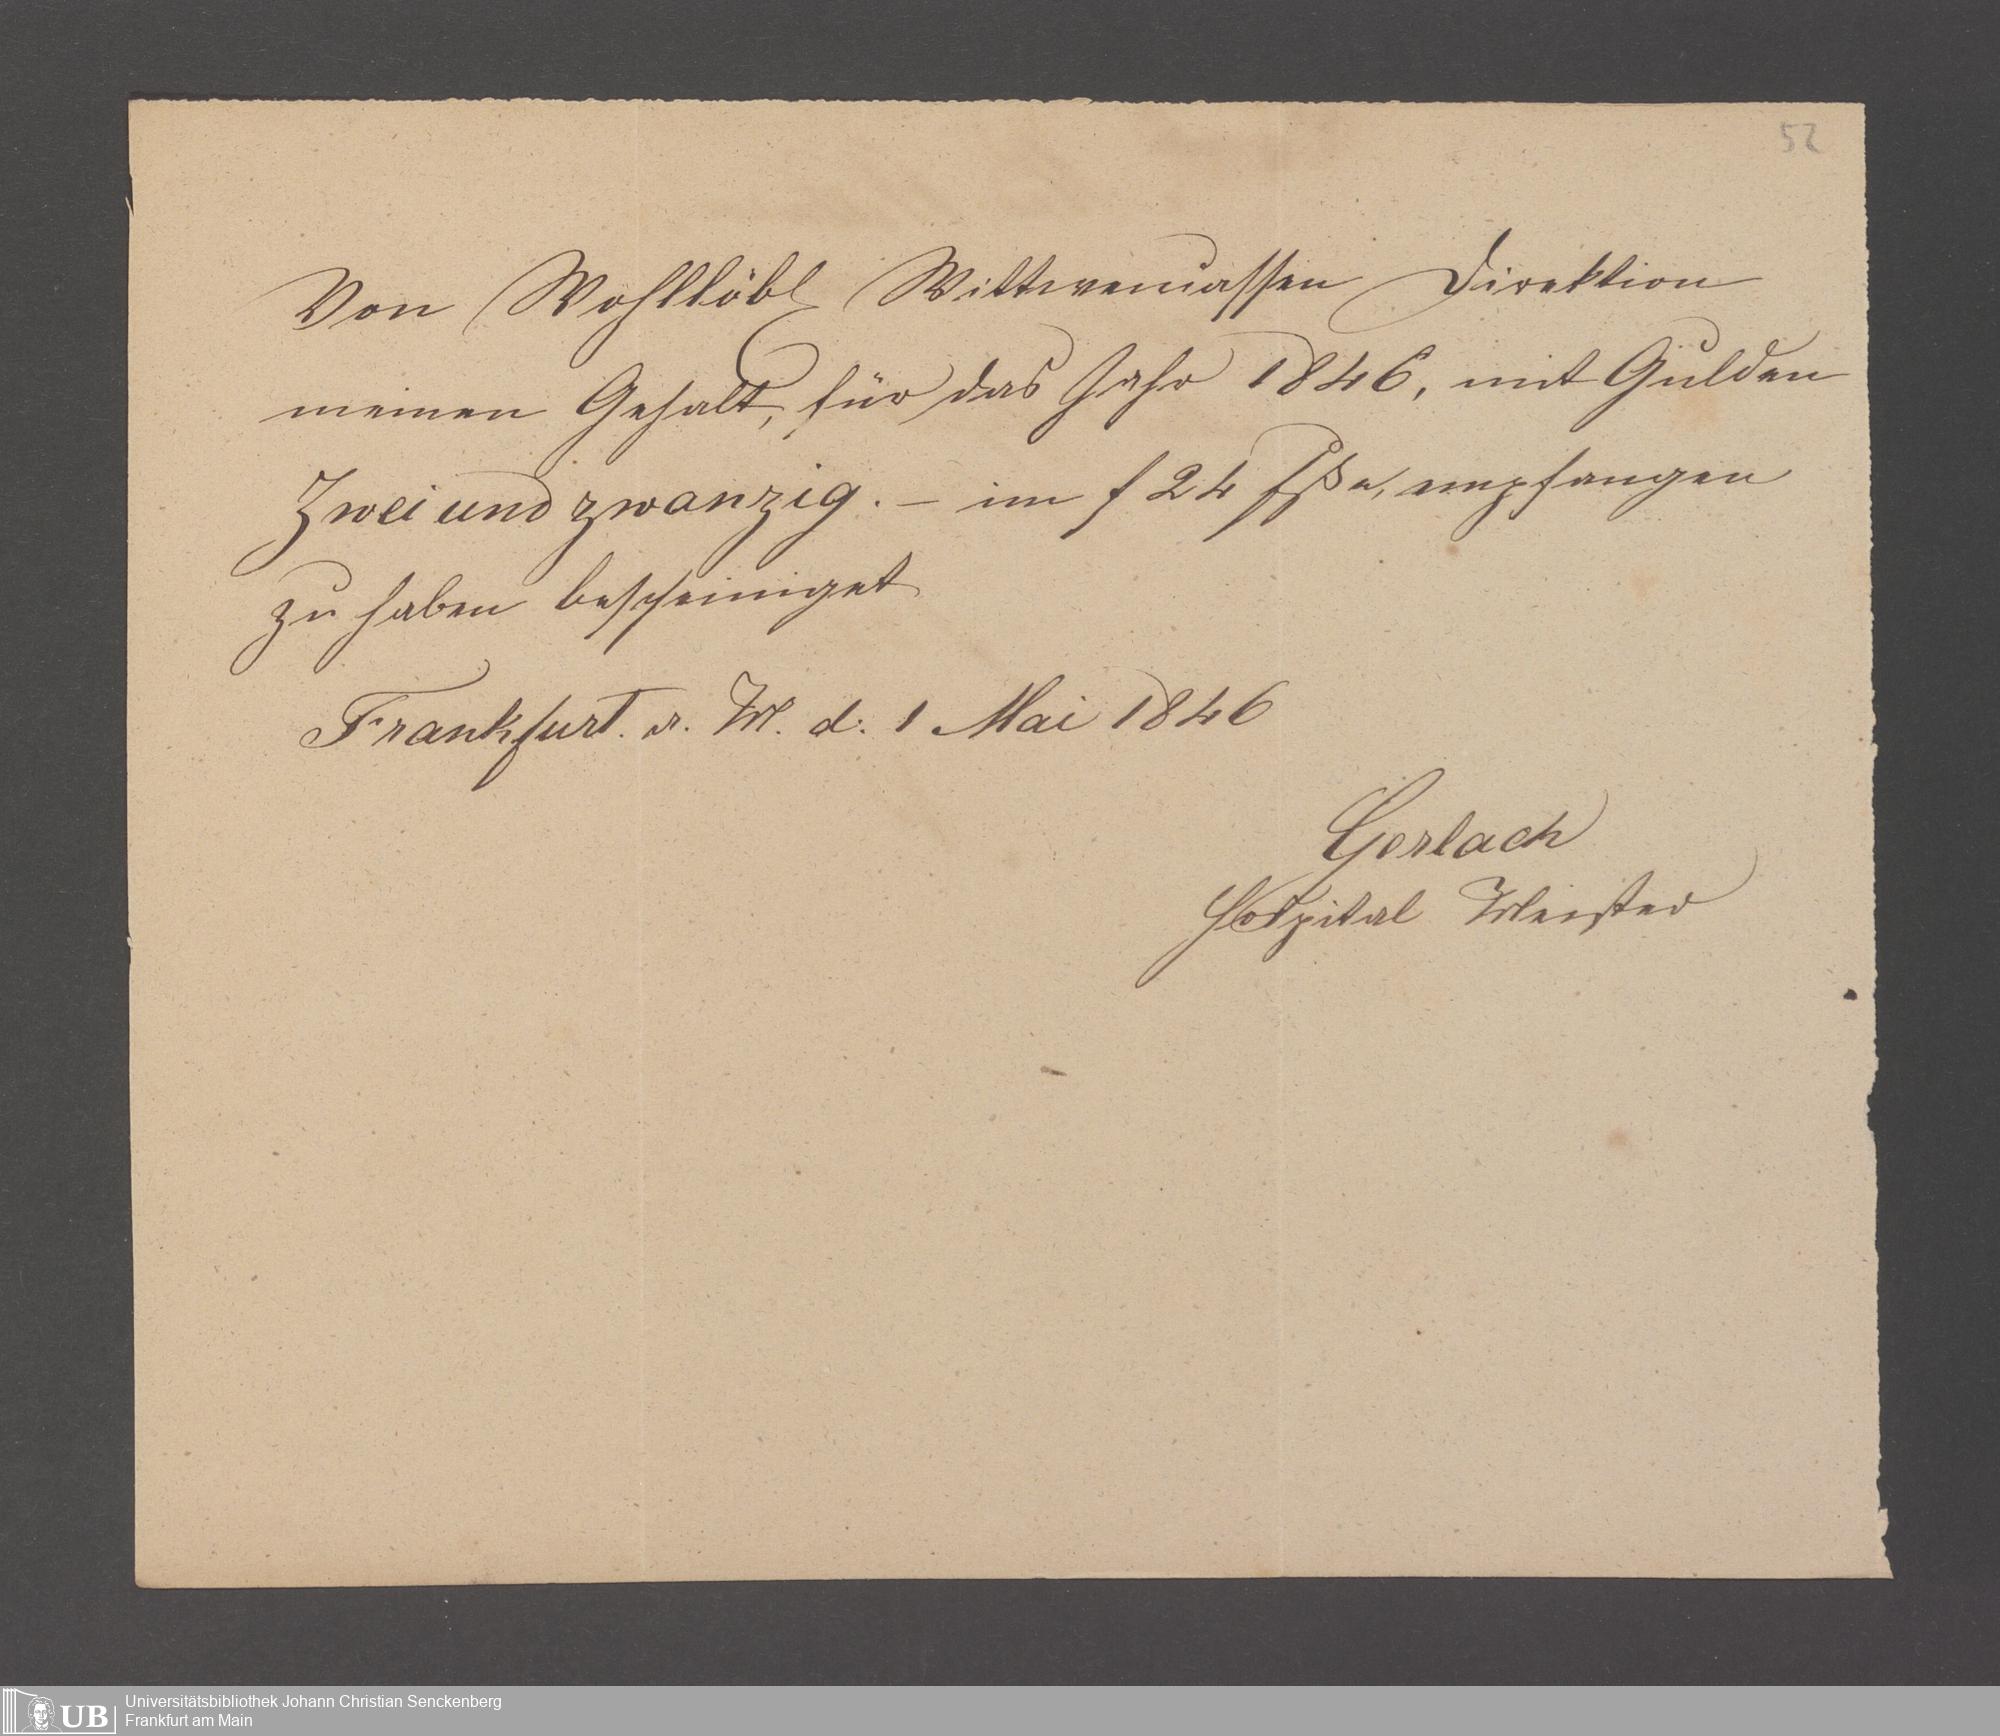 52
Von Wohllöbl Wittwencassen Direktion
meinen Gehalt, für das Jahr 1846, mit Gulden
Zwei und zwanzig. – im f 24 empfangen
zu haben bescheiniget
Frankfurt. a. M. d. 1 Mai 1846
Gerlach
Hospital Meister
UB
Universitätsbibliothek Johann Christian Senckenberg
Frankfurt am Main